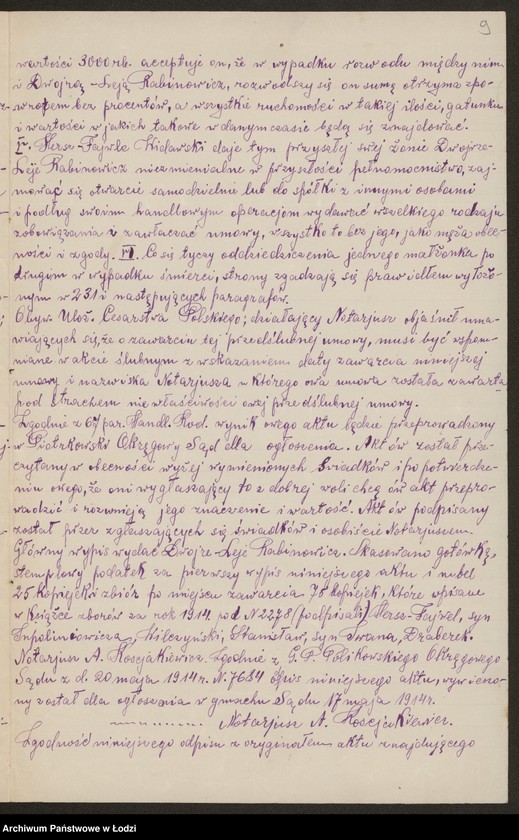 9
wartości 3000 rb. acceptuje on, że w wypadku rozwodu między nim
i Dwojrą-Leją Rabinowicz, rozwodszy się on sumę otrzyma zpo-
wrotem bez procentów, a wszystkie ruchomości w takiej ilości, gatunku
i wartości w jakich takowe w danym czasie będą się znajdować.
IV. Hersz-Fajwel Widawski daje tym przyszłej swej żonie Dwojrze-
Leje Rabinowicz niezmienialne w przyszłości pełnomocnictwo, zaj-
mować się otwarcie samodzielnie lub do spółki z innymi osobami
i podług swoim handlowym operacjom wydawać wszelkiego rodzaju
zobowiązania i zawłaczać umowy, wszystko to bez jego, jako męża obec-
ności i zgody. VI. Co się tyczy oddziedziczenia jednego małżonka po
drugim w wypadku śmierci, strony zgadzają się prawidłem wyłożo-
nym w 231 i następujących paragrafów.
Obyw. Ułoż. Cesarstwa Polskiego; działający Notarjusz objaśnił uma-
wiających się, że o zawarciu tej przedślubnej umowy, musi być wspom-
niane w akcie ślubnym z wskazaniem daty zawarcia niniejszej
umowy i nazwiska Notarjusza u którego owa umowa została zawarta
pod strachem niewłaściwości owej przedślubnej umowy.
Zgodnie z 67 par. Handl. Kod. wynik owego aktu będzie przeprowadzony
w Piotrkowski Okręgowy Sąd dla ogłoszenia. Akt ów został prze-
czytany w obecności wyżej wymienionych świadków i po potwierdze-
niu onego, że oni wygłaszający to z dobrej woli chcą ów akt przepro-
wadzić i rozumieją jego znaczenie i wartość. Akt ów podpisany
został przez zgłaszających się, świadków i osobiście Notarjuszem.
Główny wypis wydać Dwojrze-Leje Rabinowicz. Skasowano gotówką,
stemplowy podatek za pierwszy wypis niniejszego aktu 1 rubel
25 kopiejek i zbiór po miejscu zawarcia 75 kopiejek, które wpisane
w książce zborów za rok 1914. pod N 2278 (podpisali) Hersz-Fajwel, syn
Wilczyński, Stanisław, syn Iwana, Dzaberek.
Notarjusz A. Koscjakiewicz. Zgodnie z Okręgowego
Sądu z d. 20 maja 1914 r. N. 7684 opis niniejszego aktu, wywieszo-
ny został dla ogłoszenia w gmachu Sądu 17 maja 1914 r.
Notarjusz A. Koscjakiewicz.
Zgodność niniejszego odpisu z oryginałem aktu znajdującego
Archiwum Państwowe w Łodzi